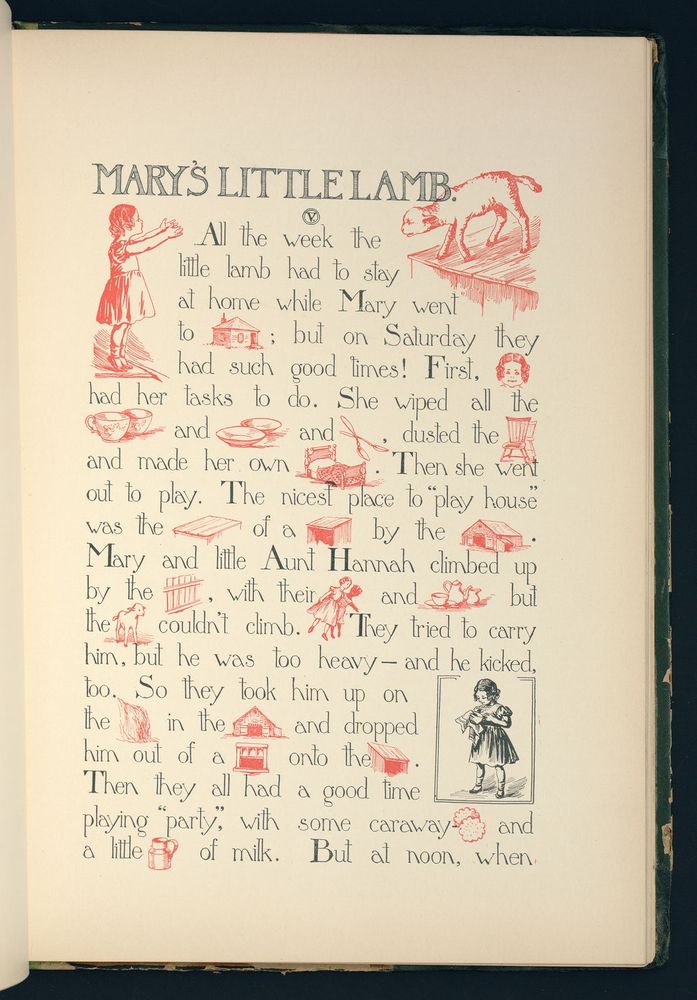 MARY'S LITTLE LAMB.
V.
All the week the
little lamb had to stay
at home while Mary went
to ; but on Saturday they
had such good times! First,
had her tasks to do. She wiped all the
and and , dusted the
and made her own . Then she went
out to play. The nicest place to "play house"
was the of a by the .
Mary and little Aunt Hannah climbed up
by the , with their and but
the couldn't climb. They tried to carry
him, but he was too heavy — and he kicked,
too. So they took him up on
the in the and dropped
him out of a onto the .
Then they all had a good time
playing "party," with some caraway- and
a little of milk. But at noon, when